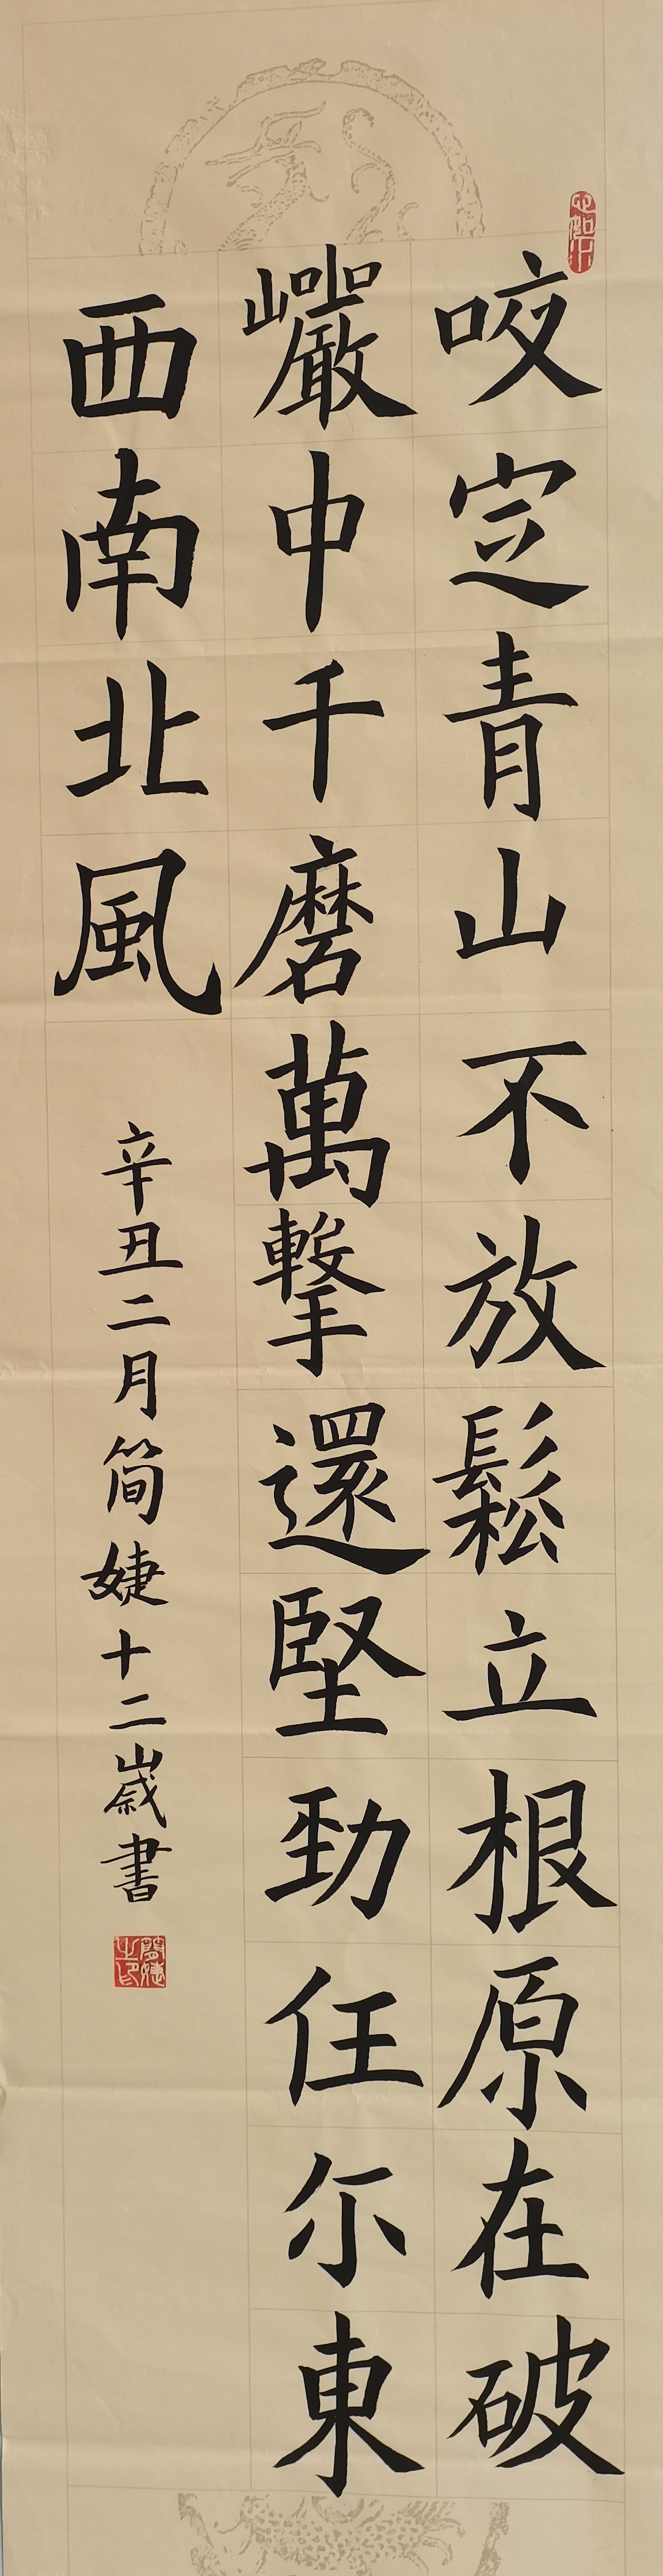 咬定青山不放鬆立根原在破
巗中千磨萬擊還堅勁任尔東
西南北風
辛丑二月简婕十二歲書
簡婕之印